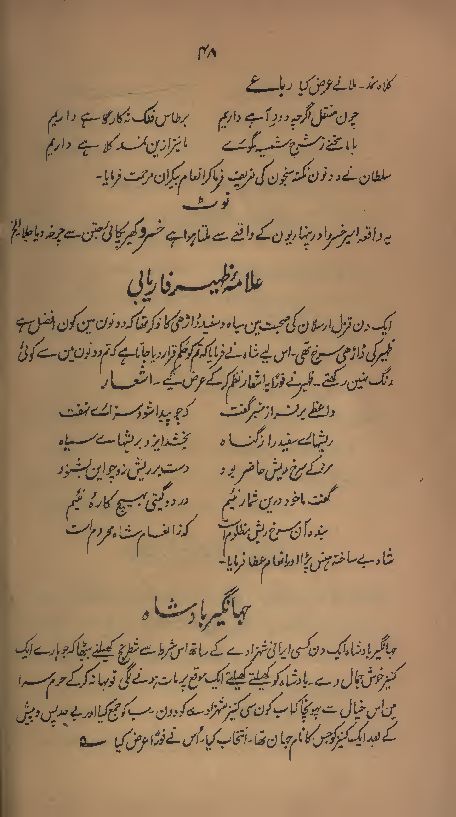 ۴۸
کلاہ نمد۔ ملا نے عرض کیا رباعی
چون منقل اگرچہ دود آہے داریم
برطاس فلک بکار گاہے داریم
با ما سخنے ز سرخ گوے
ما نیز ازین نمد کلاہے داریم
سلطان نے دونون نکتہ سنجون کی تعریف فرماکر انعام بیکران مرحمت فرمایا۔
نوٹ
یہ واقعہ امیر خسرو اور پنہاریون کے واقعے سے ملتا ہوا ہے خسرو کھیر پکائی جتن سے چرخہ دیا جلا الخ
علامۂ ظہیر فاریابی
ایک دن قزل ارسلان کی صحبت مین سیاہ و سفید ڈاڑھی کا ذکر تھا کہ دونون مین کون افضل ہے
ظہیر کی ڈاڑھی سرخ تھی۔ اس لیے شاہ نے فرمایا کہ تم کو حکم قرار دیا جاتا ہے کہ تم دونون مین سے کوئی
رنگ نہین رکھتے۔ ظہیر نے فوراً یہ اشعار نظم کر کے عرض کیے۔ اشعار
واعظے بر فراز منبر گفت
کہ چو پیدا شود سراے نہفت
ریشہاے سفید را ز گناہ
بخشد ایزد بریشہاے سیاہ
مردکے سرخ ریش حاضر بود
دست بر ریش زد چو این بشنود
گفت ما خود درین شمار نئیم
در دو گیتی بہیچ کارہ نئیم
بندہ آن سرخ ریش مظلوم است
کہ ز انعام شاہ محروم است
شاہ بے ساختہ ہنس پڑا اور انعام عطا فرمایا۔
جہانگیر بادشاہ
جہانگیر بادشاہ ایک دن کسی ایرانی شہزادے کے ساتھ اس شرط سے شطرنج کھیلنے بیٹھا کہ جو ہارے ایک
کنیز خوش جمال دے۔ بادشاہ کو کھیلتے کھیلتے ایک موقع پر مات ہونے لگی تو بہانہ کر کے حرم سرا
مین اس خیال سے پہونچا کہ اب کون سی کنیز شہزادے کو دون۔ سب کو جمع کیا اور بے حد پس و پیش
کے بعد ایک کنیز کو جس کا نام جہان تھا۔ انتخاب کیا۔ اُس نے فوراً عرض کیا ؎